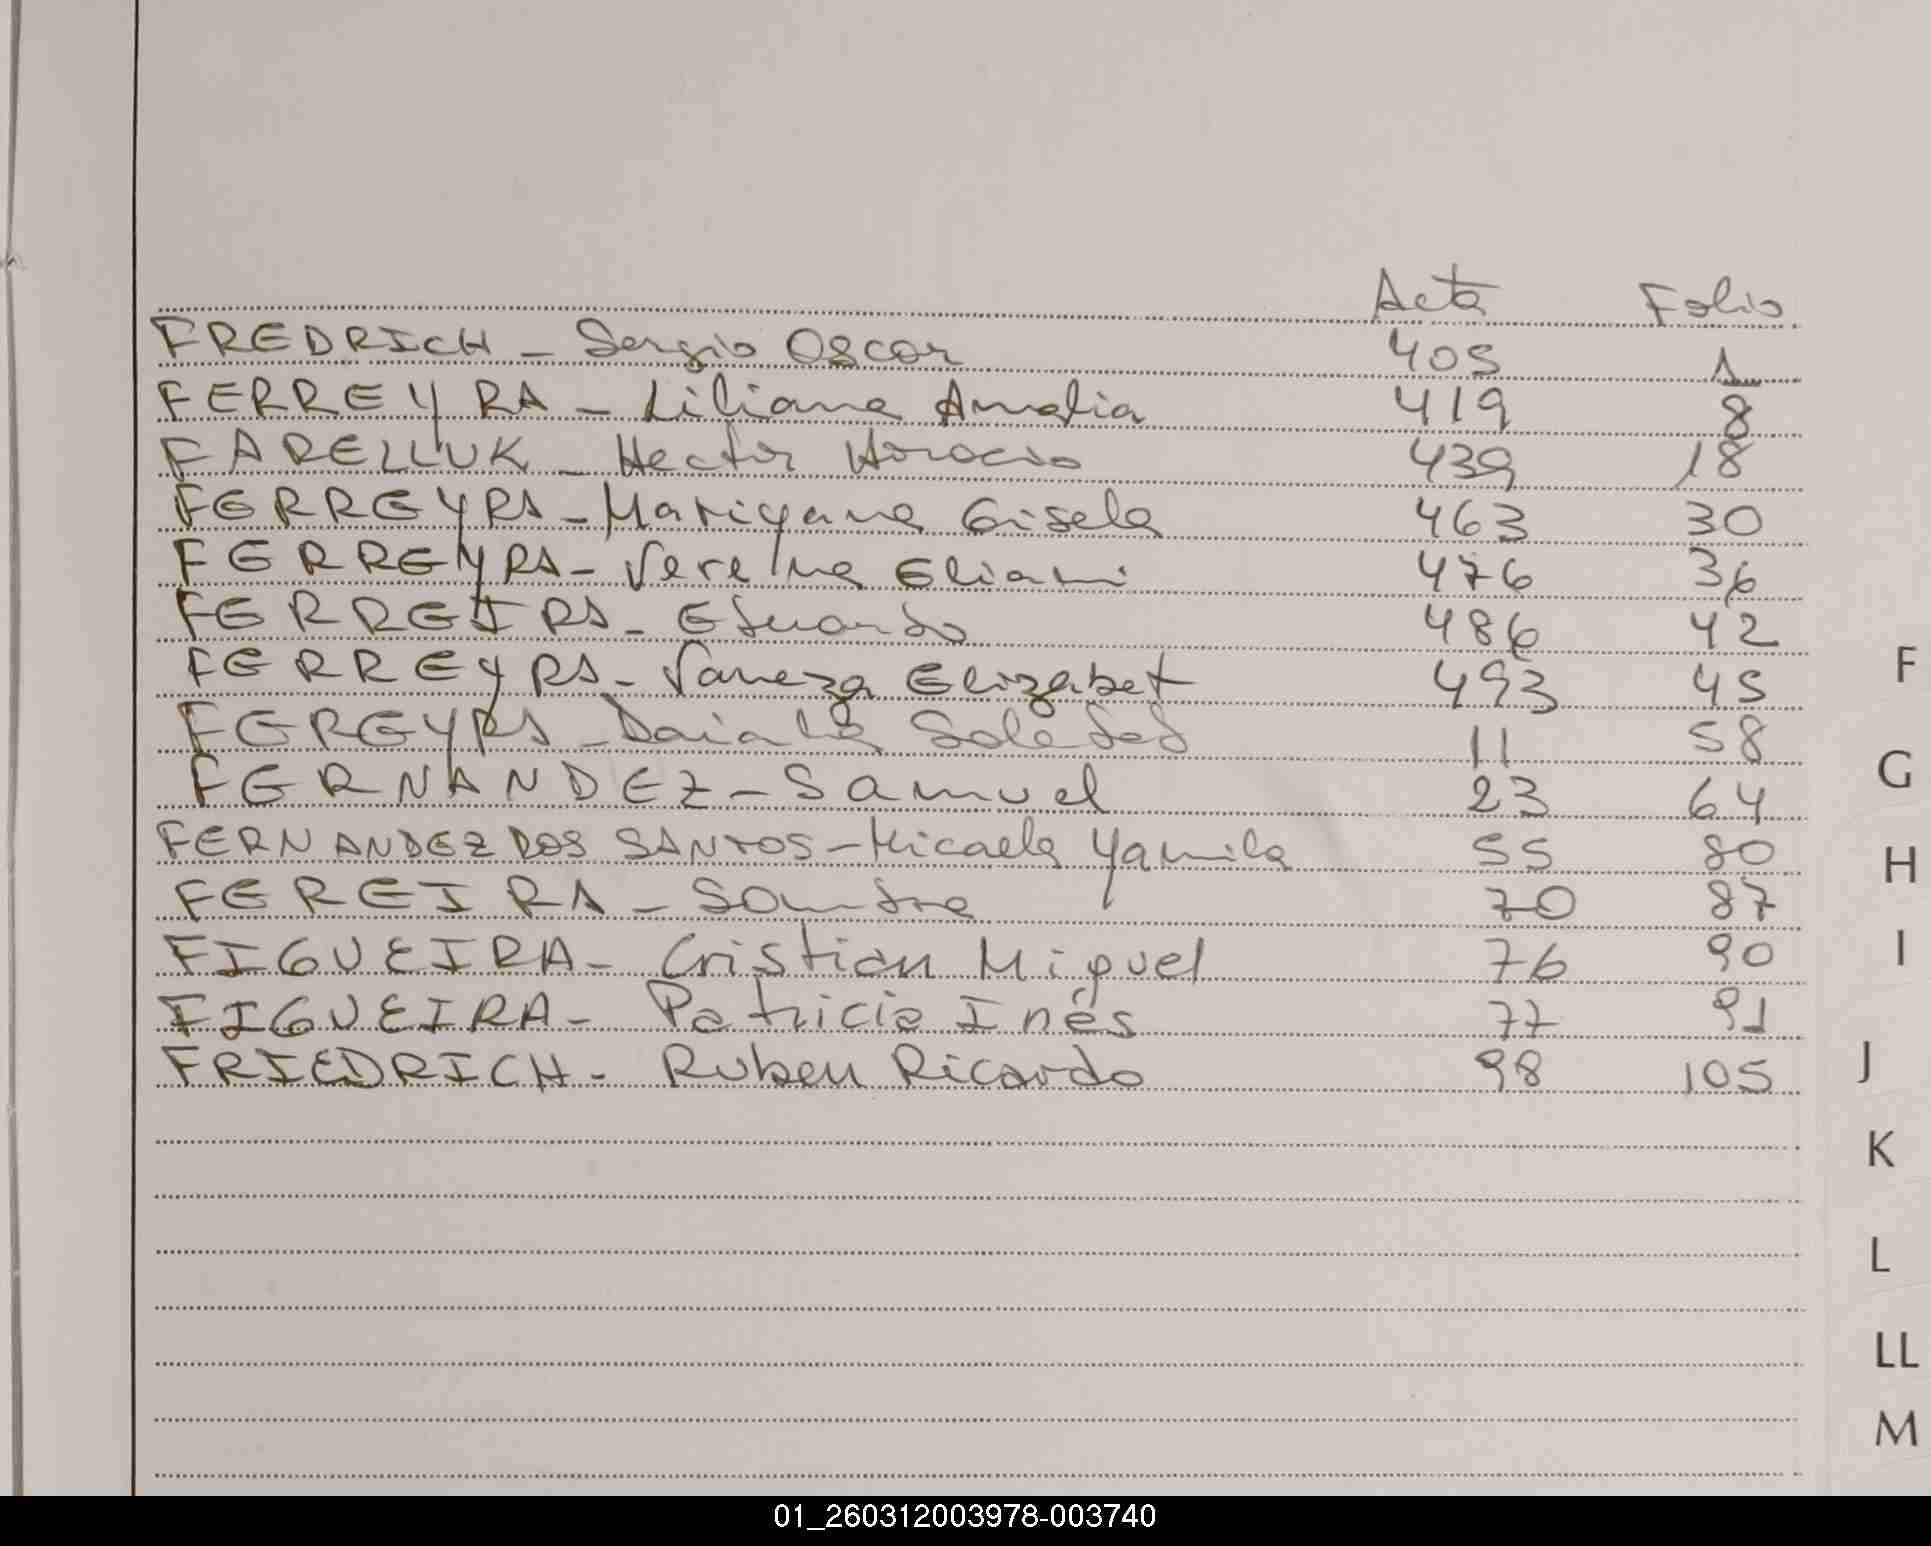 Acta Folio
FREDRICH - Sergio Oscar 405 1
FERREYRA - Liliana Amalia 419 8
FARELLUK - Hector Horacio 439 18
FERREYRA - Mariyana Gisela 463 30
FERREYRA - Verelina Eliani 476 36
FERREIRA - Eduardo 486 42
FERREYRA - Vaneza Elizabet 493 45
FEREYRA - Daiana Soledad 11 58
FERNANDEZ - Samuel 23 64
FERNANDEZ DOS SANTOS - Micaela Yamila 55 80
FEREIRA - Sandra 70 87
FIGUEIRA - Cristian Miguel 76 90
FIGUEIRA - Patricia Inés 77 91
FRIEDRICH - Ruben Ricardo 98 105
F
G
H
I
J
K
L
LL
M
01_260312003978-003740